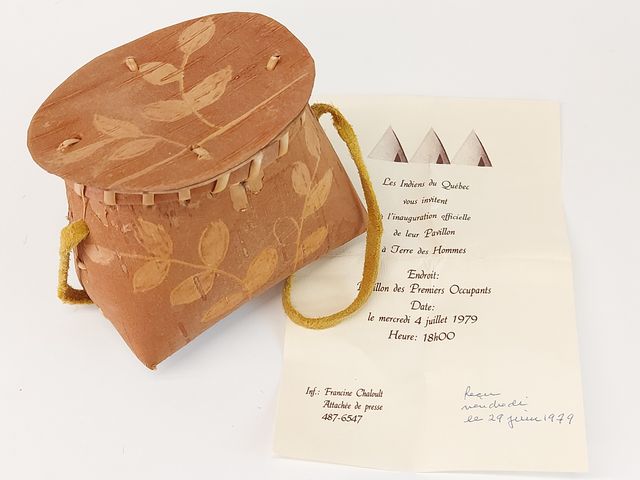 Les Indiens du Québec
vous invitent
à l'inauguration officielle
de leur Pavillon
à Terre des Hommes
Endroit:
des Premiers Occupants
Date:
le mercredi 4 juillet 1979
Heure: 18h00
Inf.: Francine Chaloult
Attachée de presse
487-6547
Reçu
vendredi
le 29 juin 1979